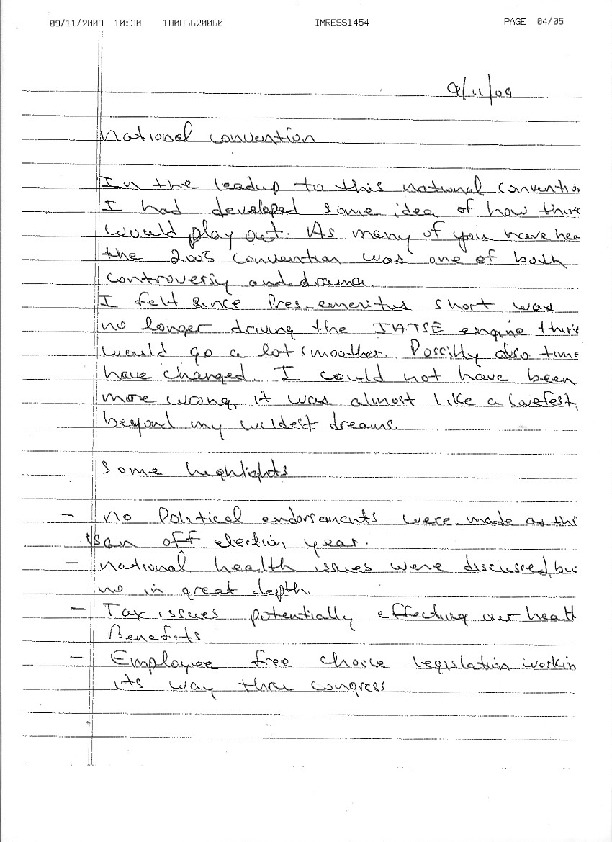 09/11/2009 10:30 IMRESS1454 PAGE 04/05
9/11/09
National convention
In the leadup to this national convention
I had developed some idea of how things
would play out. As many of you have hea
the 2005 convention was one of both
controversy and drama.
I felt since Pres. emeritus Short was
no longer driving the IATSE engine this
would go a lot smoother. Possibly also time
have changed. I could not have been
more wrong, it was almost like a lovefest,
beyond my wildest dreams.
Some highlights
- No Political endorsments were made as this
is an off election year.
- National health issues were discussed, but
no in great depth.
- Tax issues potentially effecting our health
Benefits
- Employee free choice legislation workin
its way thru congress